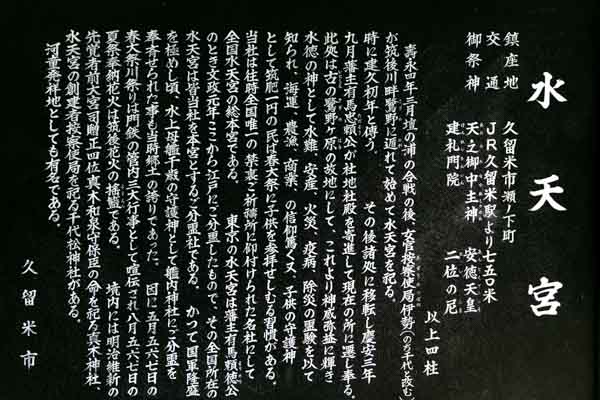 水天宮
鎮座地 久留米市瀬ノ下町
交通 JR久留米駅より七五〇米
御祭神 天之御中主神 安徳天皇
建礼門院 二位の尼
以上四柱
寿永四年三月壇の浦の合戦の後、女官按察使局伊勢(のち千代と改む)
が筑後川畔鷺野に遁れて始めて水天宮を祀る。
時に建久初年と傳う。 その後諸処に移転し慶安三年
九月藩主有馬忠頼公が社地社殿を寄進して現在の所に遷し奉る。
此処は古の鷺野ヶ原の故地にして、これより神威弥益に輝き
水徳の神として水難、安産、火災、疫病、除災の霊験を以て
知られ、海運、農漁、商業、の信仰篤く又、子供の守護神
として筑肥一円の民は春大祭に子供を参拝せしむる習慣がある。
当社は往時全国唯一の禁裏ご祈祷所に仰付けられた名社にして
全国水天宮の総本宮である。 東京の水天宮は藩主有馬頼徳公
のとき文政元年ここから江戸にご分里したもので、その全国所在の
水天宮は皆当社を本宮とするご分里社である。 かつて国軍隆盛
を極めし頃、水上母艦千歳の守護神として艦内神社にご分里を
奉斎せられた事も当時郷土の誇りであった。 因に五月五六七日の
春大祭川祭りは門鉄の管内三大行事として喧伝され八月五六七日の
夏祭奉納花火は筑後花火の揺籃である。 境内には明治維新の
先覚者前大宮司贈正四位真木和泉守保臣の命を祀る真木神社、
水天宮の創建者按察使局を祀る千代松神社がある。
河童発祥地としても有名である。
久留米市